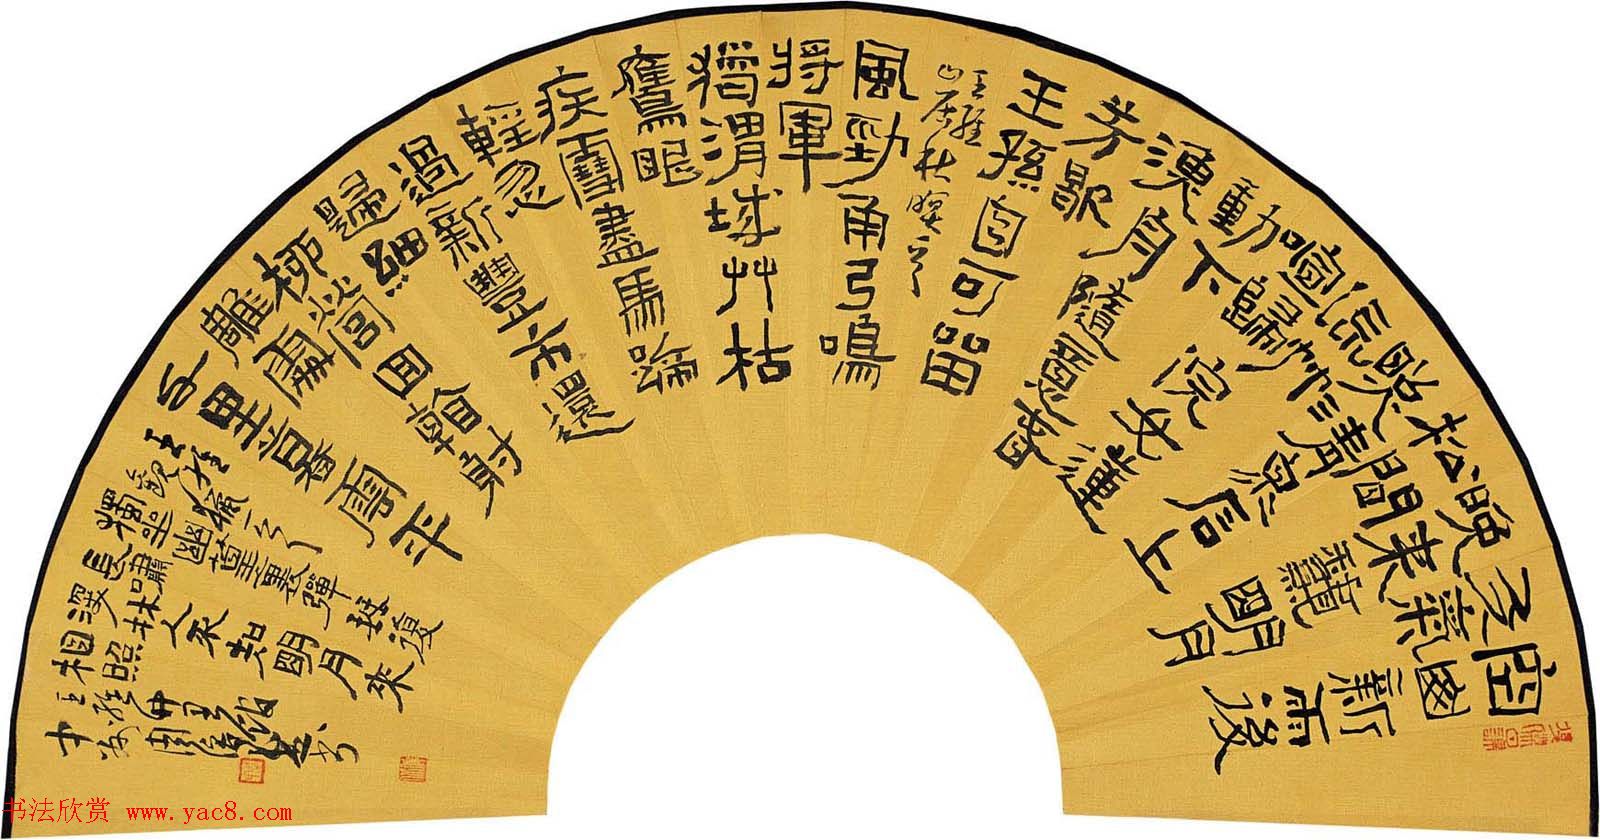 空山新雨後
天氣
晚来秋明月
松間照清泉石上
流竹
喧歸浣女蓮
動下
漁舟隨意春
芳歇
王孫自可留
王維山居秋暝一首
風勁角弓鳴
將軍
獵渭城艸枯
鷹眼
疾雪盡馬蹄
輕忽
過新豐市還
歸細
柳營回看射
雕處
千里暮雲平
王維觀獵一首
獨坐幽篁裏彈琴復
長嘯
深林人不知明月來
相照
王維竹里館
书法欣赏 www.yac8.com